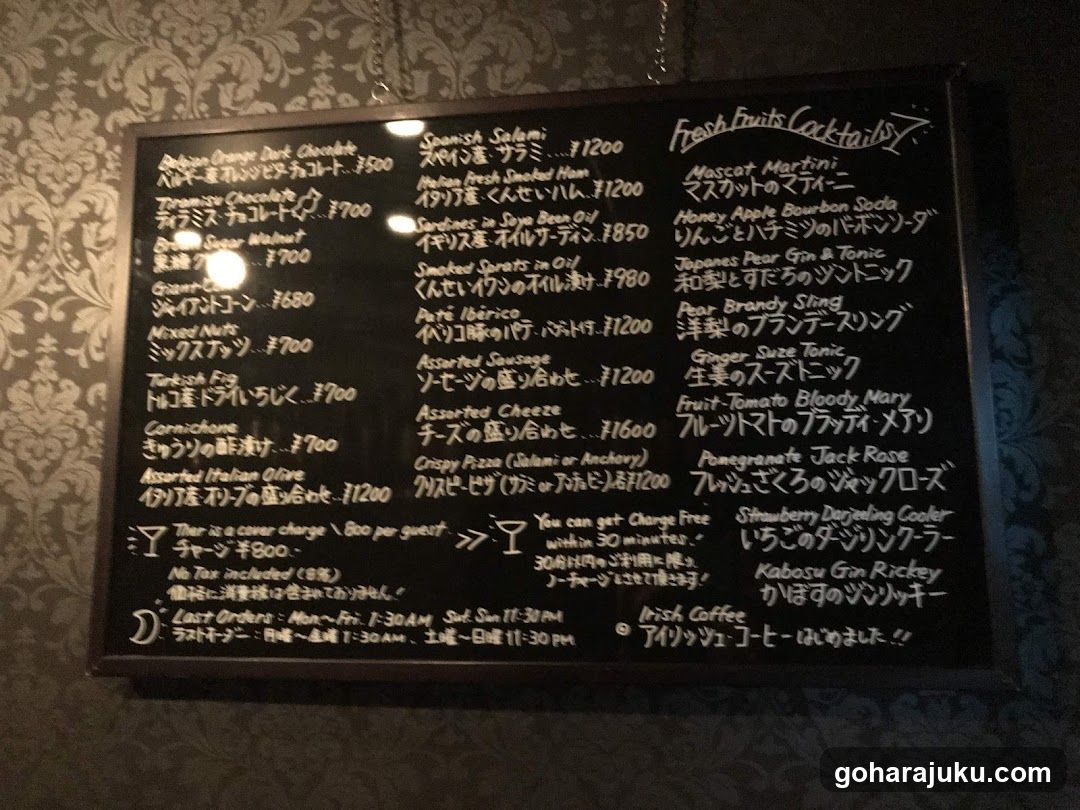 Belgian Orange Dark Chocolate
ベルギー産オレンジビターチョコレート...¥500
Toramisu Chocolate
ティラミス・チョコレート...¥700
Brown Sugar Walnut
黒糖ク ...¥700
Giant Co
ジャイアントコーン...¥680
Mixed Nuts
ミックスナッツ...¥700
Turkish Fig
トルコ産・ドライいちじく...¥700
Cornichone
きゅうりの酢漬け...¥700
Assorted Italian Olive
イタリア産・オリーブの盛り合わせ...¥1200
Spanish Salami
スペイン産・サラミ....¥1200
Italian Fresh Smoked Ham
イタリア産・くんせいハム..¥1200
Sardines in Soya Bean Oil
イギリス産・オイルサーディン..¥850
Smoked Sprats in Oil
くんせいイワシのオイル漬け...¥980
Paté Ibérico
イベリコ豚のパテ・バゲット付..¥1200
Assorted Sausage
ソーセージの盛り合わせ...¥1200
Assorted Cheeze
チーズの盛り合わせ...¥1600
Crispy Pizza (Salami or Anchovy)
クリスピーピザ(サラミorアンチョビー)各¥1200
Fresh Fruits Cocktails
Mascat Martini
マスカットのマティーニ
Honey Apple Bourbon Soda
りんごとハチミツのバーボンソーダ
Japanes Pear Gin & Tonic
和梨とすだちのジントニック
Pear Brandy Sling
洋梨のブランデースリング
Ginger Suze Tonic
生姜のスーズトニック
Fruit-Tomato Bloody Mary
フルーツトマトのブラッディ・メアリ
Pomegranate Jack Rose
フレッシュざくろのジャックローズ
Strawberry Darjeeling Cooler
いちごのダージリンクーラー
Kabosu Gin Rickey
かぼすのジンリッキー
Ther is a cover charge \800 per guest
チャージ ¥800.-
No Tax included (8%)
価格に消費税は含まれておりません!
>> You can get Charge Free
within 30 minutes.!
30分以内のご利用に限り、
ノーチャージとさせて頂きます!
Last Orders : Mon~Fri. 1:30AM Sat. Sun 11:30 PM
ラストオーダー : 月曜~金曜 1:30AM、土曜~日曜 11:30 PM
◎ Irish Coffee
アイリッシュ・コーヒーはじめました!!
goharajuku.com